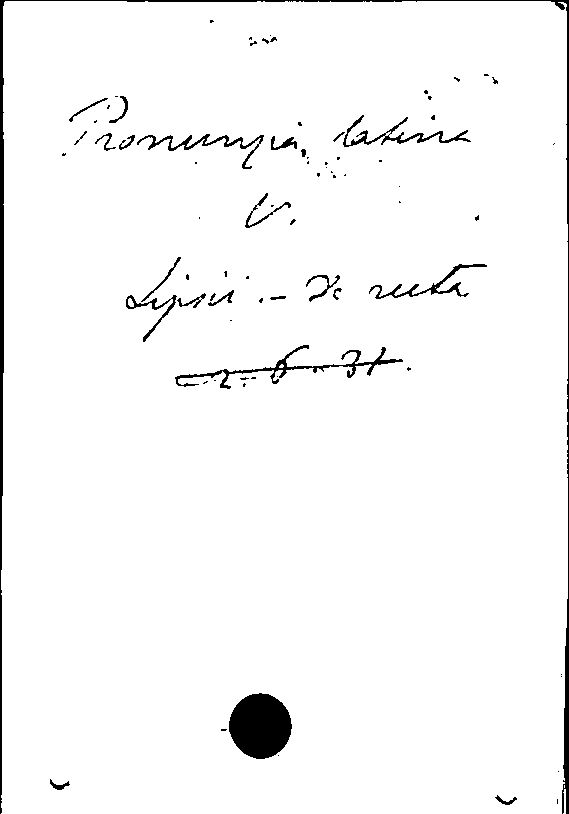 Pronunzia latina
V.
Lipsii - De recta
2-6-31.